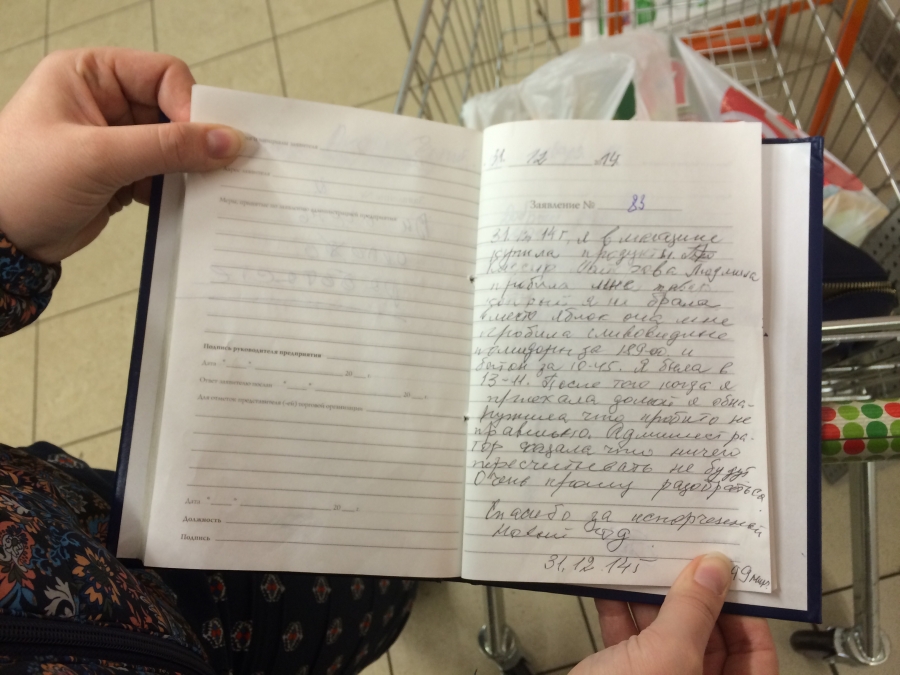 Меры, принятые по заявлению администрацией предприятия
Подпись руководителя предприятия
Дата "___" ______ 20___г.
Ответ заявителю выслан "___" ______ 20___г.
Для отметок представителей (-ей) торговой организации
Дата "___" ______ 20___г.
Должность
Подпись
31 12 14
Заявление № 83
31.12.14г. я в магазине
купила продукты.
Людмила
пробила мне
который я не брала
вместо яблок она мне
пробила сливовидные
помидоры за 189-00 и
батон за 10-45. Я была в
13-11. После того когда я
приехала домой я обна-
ружила что пробито не
правильно. Администра-
тор сказала что ничего
пересчитывать не будут
Очень прошу разобраться
Спасибо за испорченный
Новый год.
31.12.14г